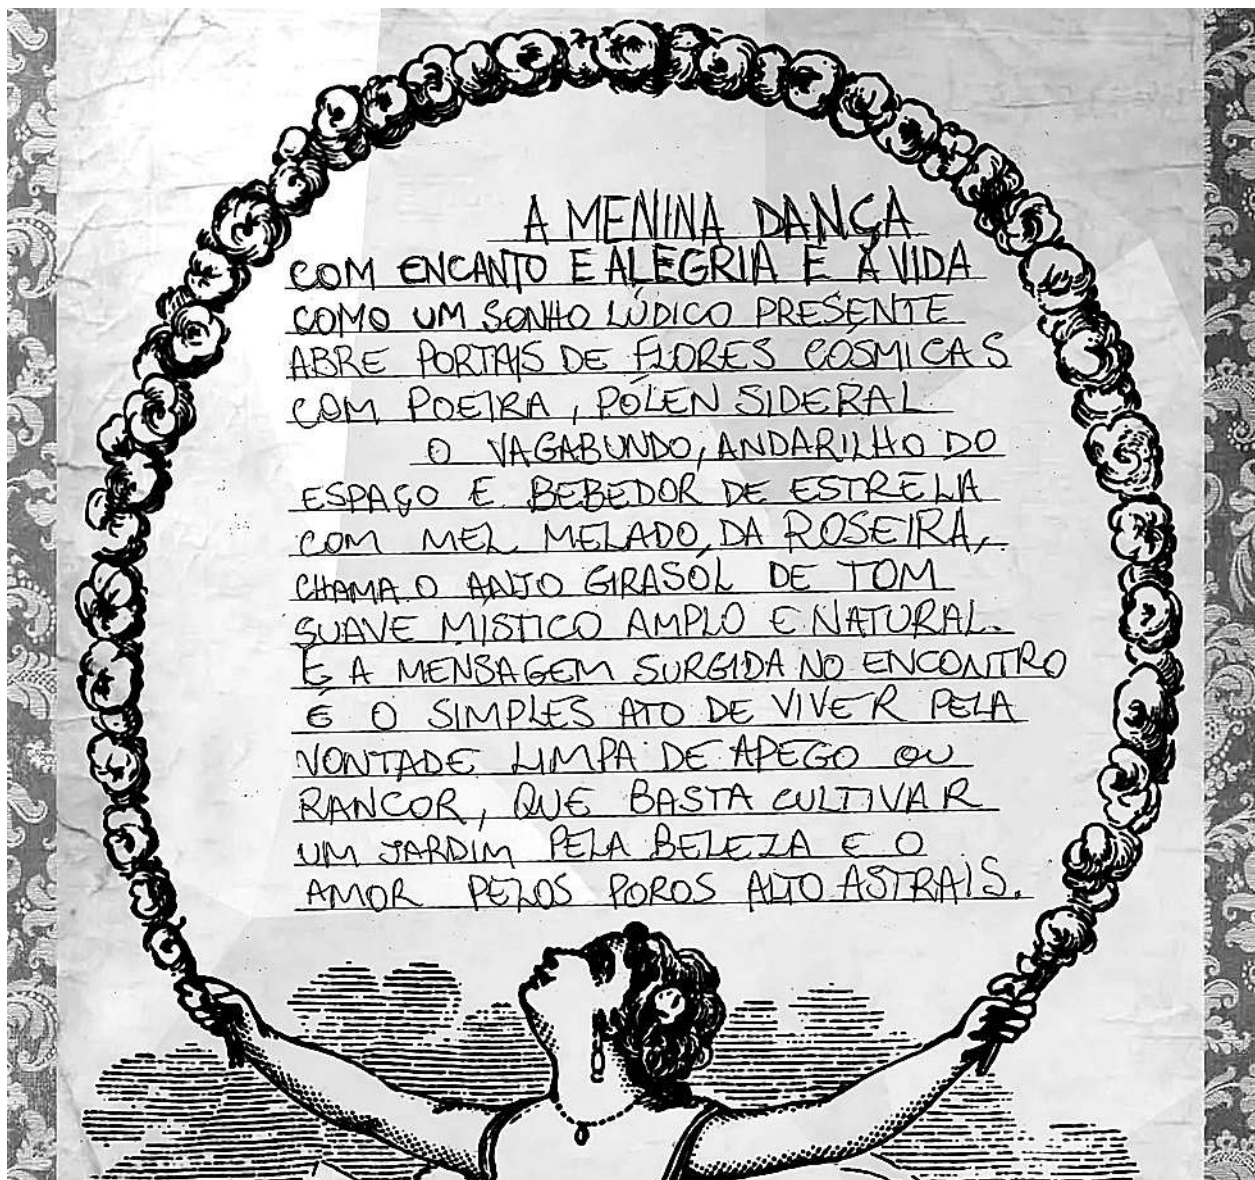 A MENINA DANÇA
COM ENCANTO E ALEGRIA E À VIDA
COMO UM SONHO LÚDICO PRESENTE
ABRE PORTAIS DE FLORES CÓSMICAS
COM POEIRA, PÓLEN SIDERAL.
O VAGABUNDO, ANDARILHO DO
ESPAÇO E BEBEDOR DE ESTRELA
COM MEL MELADO, DA ROSEIRA,
CHAMA O ANJO GIRASÓL DE TOM
SUAVE MÍSTICO AMPLO E NATURAL.
E A MENSAGEM SURGIDA NO ENCONTRO
É O SIMPLES ATO DE VIVER PELA
VONTADE LIMPA DE APEGO OU
RANCOR, QUE BASTA CULTIVAR
UM JARDIM PELA BELEZA E O
AMOR PELOS POROS ALTO ASTRAIS.